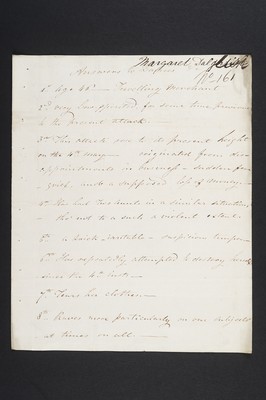 Margaret
No 161
Answers to Queries
1st Age 40 — Travelling Merchant
2nd very low spirited for some time previous
to the present attack.
3rd This attack rose to its present height
on the 4th may — originated from dis
appointments in business — sudden fear
grief, with a supposed loss of money —
4th The last two months in a similar situation
tho not to such a violent extent.
5th is quick, irritable — suspicious temper —
6th Has repeatedly attempted to destroy
since the 4th Inst —
7th Tears his clothes —
8th Raves more particularly on one subject
at times on all —